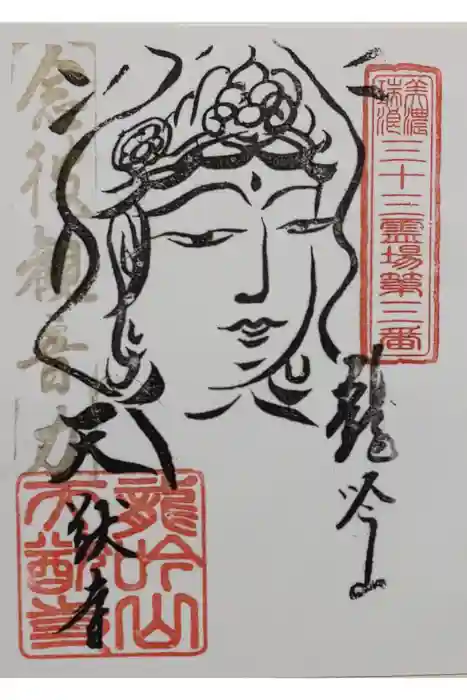 美濃
瑞浪
三十三霊場第三番
龍吟山
念彼観音力
天猷寺
龍吟山
天猷寺